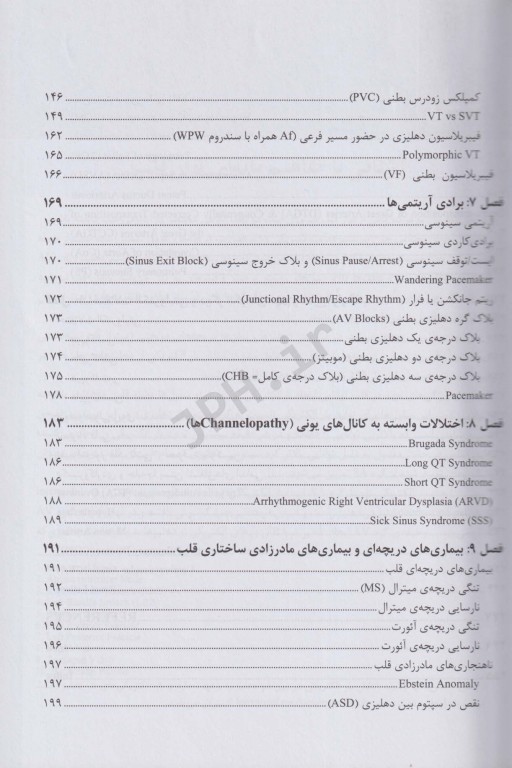 کمپلکس زودرس بطنی (PVC) ۱۴۶
VT vs SVT ۱۴۹
فیبریلاسیون دهلیزی در حضور مسیر فرعی (Af همراه با سندروم WPW) ۱۶۲
Polymorphic VT ۱۶۵
فیبریلاسیون بطنی (VF) ۱۶۶
فصل ۷: برادی آریتمی‌ها ۱۶۹
آریتمی سینوسی ۱۶۹
برادی‌کاردی سینوسی ۱۷۰
ایست/توقف سینوسی (Sinus Pause/Arrest) و بلاک خروج سینوسی (Sinus Exit Block) ۱۷۰
Wandering Pacemaker ۱۷۱
ریتم جانکشن یا فرار (Junctional Rhythm/Escape Rhythm) ۱۷۲
بلاک گره دهلیزی بطنی (AV Blocks) ۱۷۳
بلاک درجه‌ی یک دهلیزی بطنی ۱۷۳
بلاک درجه‌ی دو دهلیزی بطنی (موبیتز) ۱۷۴
بلاک درجه‌ی سه دهلیزی بطنی (بلاک درجه‌ی کامل= CHB) ۱۷۵
Pacemaker ۱۷۸
فصل ۸: اختلالات وابسته به کانال‌های یونی (Channelopathyها) ۱۸۳
Brugada Syndrome ۱۸۳
Long QT Syndrome ۱۸۶
Short QT Syndrome ۱۸۶
Arrhythmogenic Right Ventricular Dysplasia (ARVD) ۱۸۸
Sick Sinus Syndrome (SSS) ۱۸۹
فصل ۹: بیماری‌های دریچه‌ای و بیماری‌های مادرزادی ساختاری قلب ۱۹۱
بیماری‌های دریچه‌ای قلب ۱۹۱
تنگی دریچه‌ی میترال (MS) ۱۹۲
نارسایی دریچه‌ی میترال ۱۹۴
تنگی دریچه‌ی آئورت ۱۹۵
نارسایی دریچه‌ی آئورت ۱۹۶
ناهنجاری‌های مادرزادی قلب ۱۹۷
Ebstein Anomaly ۱۹۷
نقص در سپتوم بین دهلیزی (ASD) ۱۹۹
JPH.ir